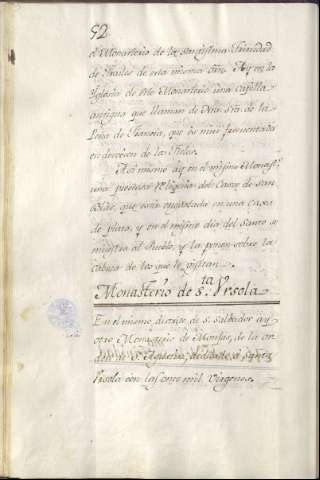 52
el Monasterio de la Santissima Trinidad
de Frailes de esta misma Orn. Ay en la
Yglesia de este Monasterio una capilla
antigua que llaman de Nra. Sra. de la
Peña de Francia, que es mui frecuentada
en devocion de los Fieles.
Asi mismo ay en el mismo Monastº.
una preciosa Reliquia del Cuerpo de San
Blas, que está engastada en una Caxa
de plata, y en el mismo dia del Santo se
muestra al Pueblo, y la ponen sobre la
cabeza de los que le visitan.
Monasterio de Sta. Vrsola
En el mismo districto de S. Salvador ay
otro Monasterio de Monjas, de la or
den de S. Agustin, dedicado á Santa
Vrsola con las once mil Virgenes.